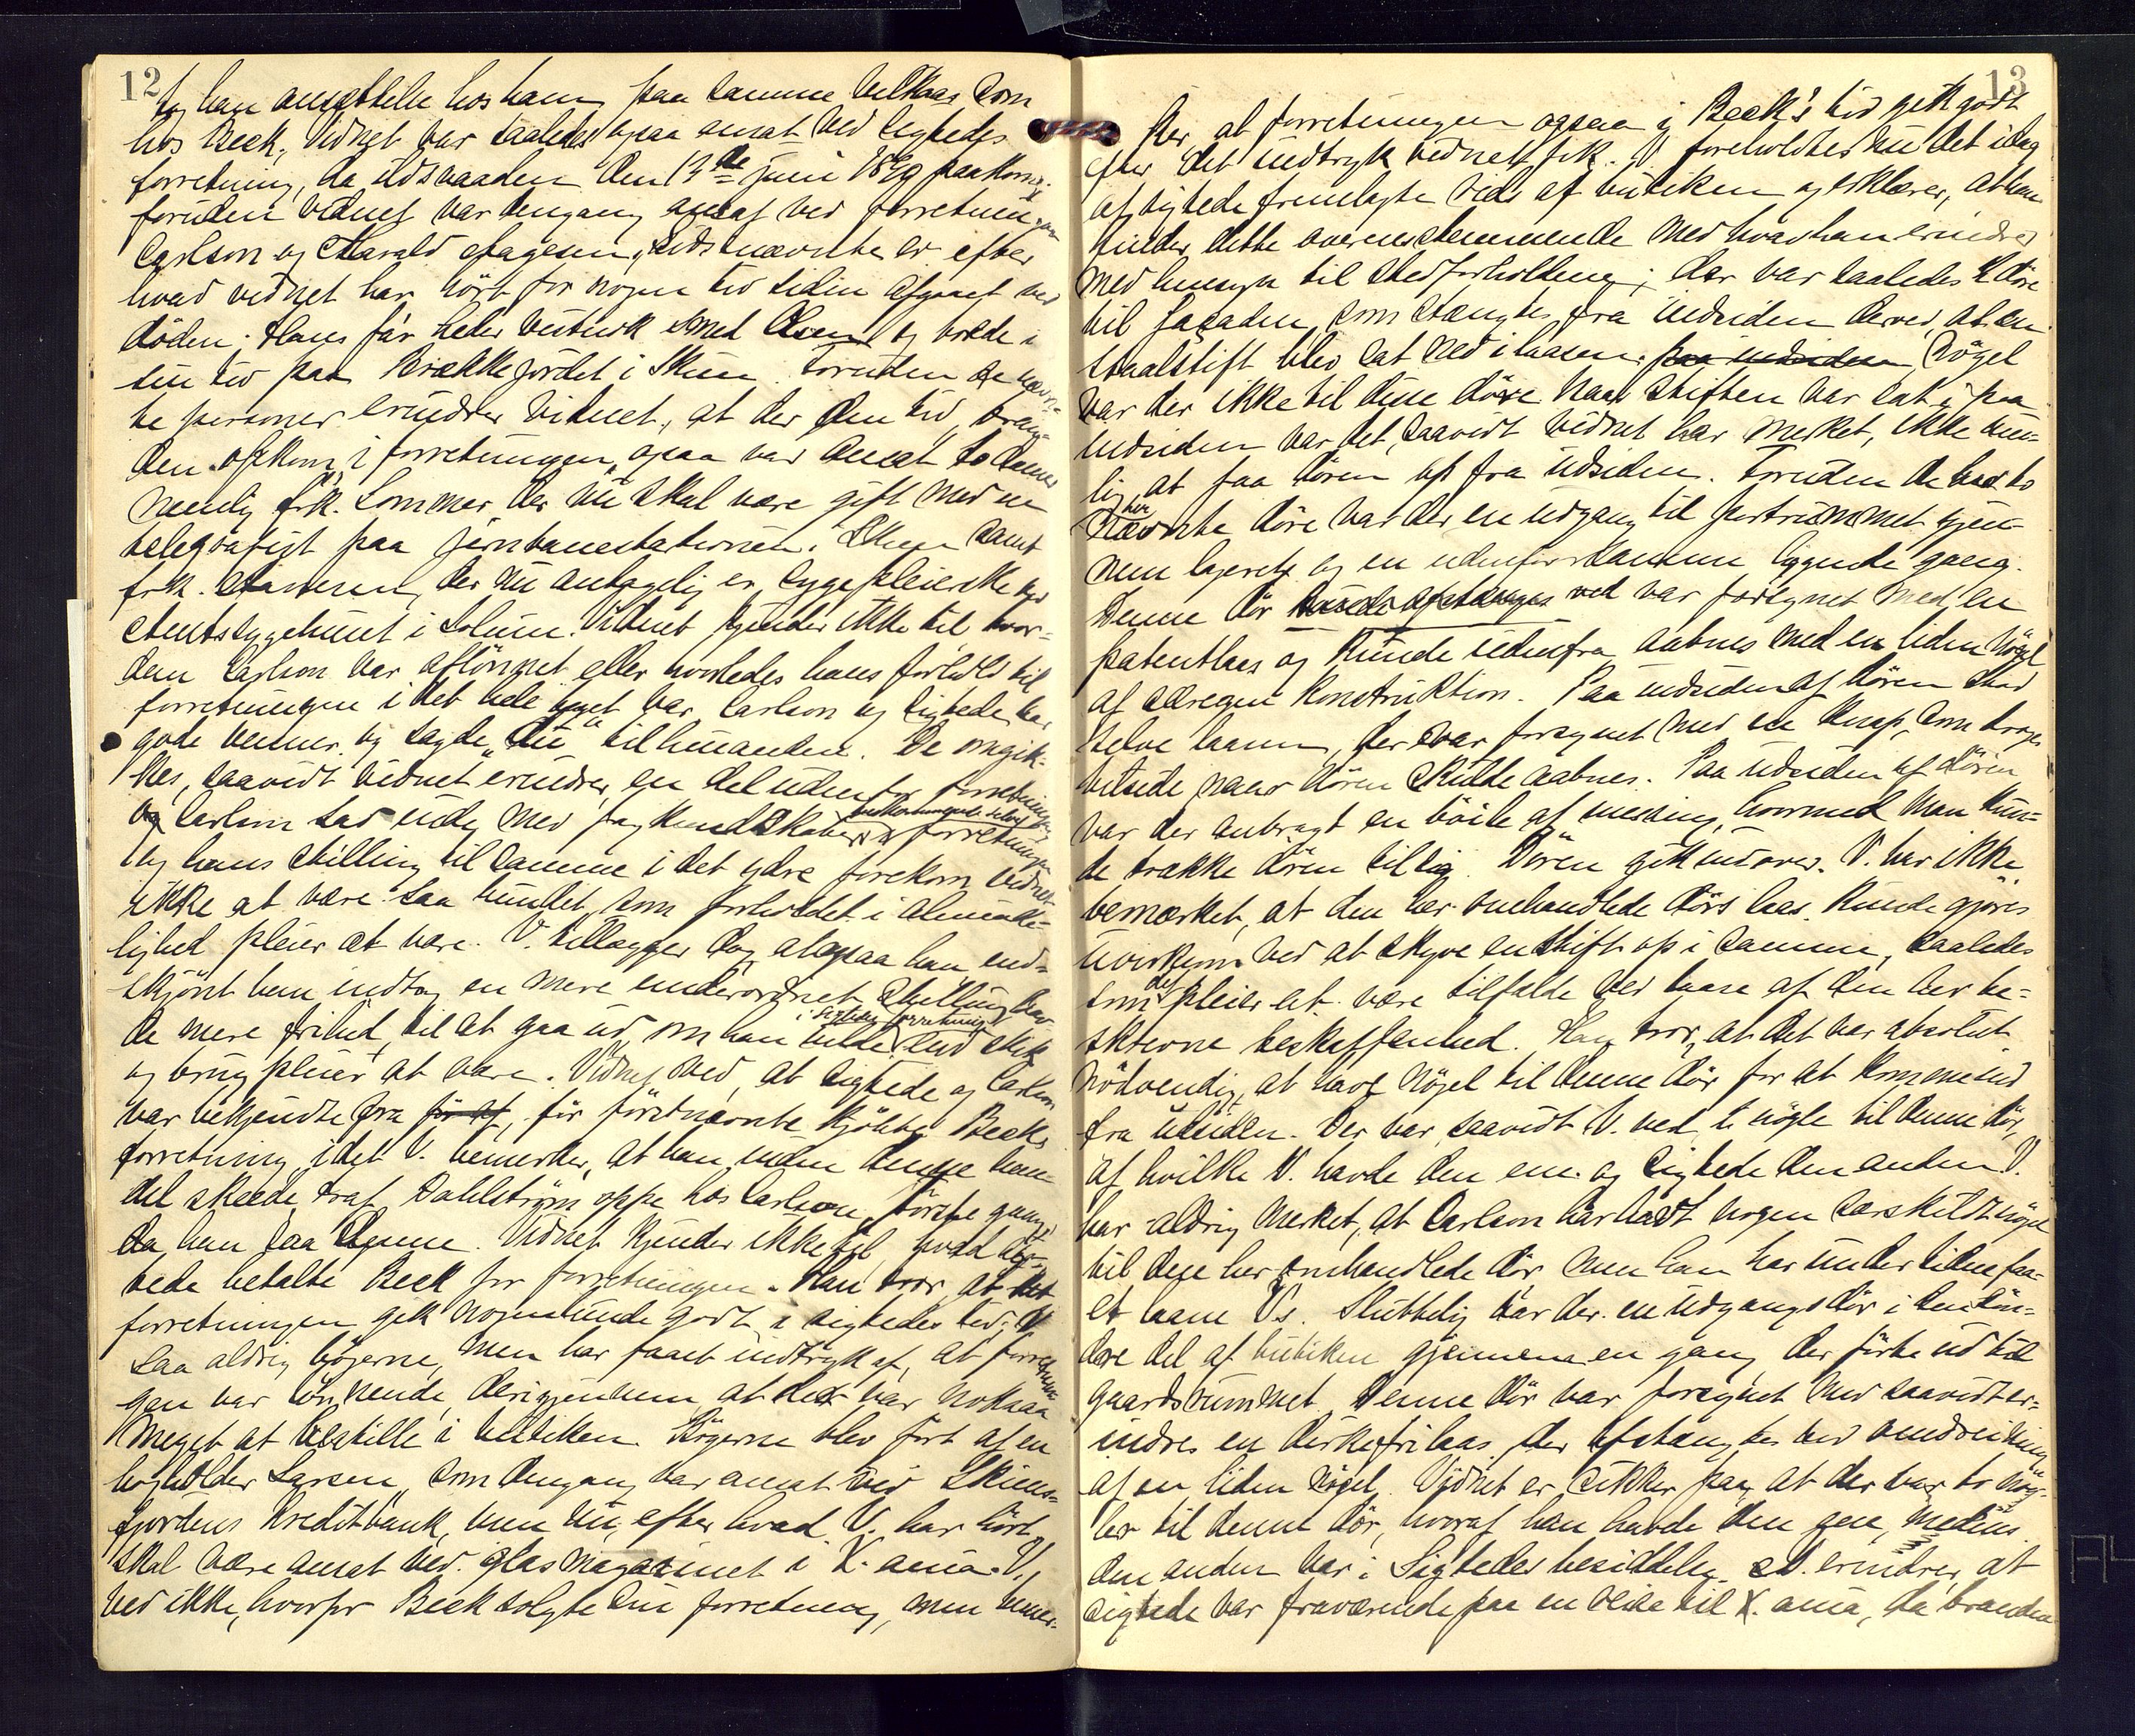 12
tog han ansættelse hos ham paa samme vilkaar som
hos Beck. Vidnet var saaledes ogsaa ansat ved sigtedes
forretning, da ildsvaaden den 13de juni 1899 paakom;
foruden vidnet var dengang ansat ved forretningen
Carlson og Harald Aagesen, sidstnævnte er efter
hvad vidnet har hørt for nogen tid siden afgaaet ved
døden. Hans far heder smed Olsen og boede i
sin tid paa Brækkejordet i Skien. Foruden de nævn-
te personer erindrer vidnet, at der den tid, bran-
den opkom i forretningen, ogsaa var ansat to damer
nemlig frk. Sommer, der nu skal være gift med en
telegrafist paa jernbanestationen i Skien samt
frk. der nu antagelig er sygepleierske ved
amtssygehuset i Solum. Vidnet kjender ikke til hvor-
dan Carlson var aflønnet eller hvorledes hans forhold til
forretningen i det hele taget var. Carlson og sigtede var
gode venner og sagde "du" til hinanden. De omgik-
kes, saavidt vidnet erindrer, en del udenfor forretningen
og Carlson sad inde med fagkundskaber forretningen
og hans stilling til samme i det ydre forekom vidnet
ikke at være saa bundet, som forholdet i alminde-
lighed pleier at være. V. tillægger dog, at ogsaa han end-
skjønt han indtog en mere underordnet stilling hav-
i sigtedes forretning
de mere frihed til at gaa ud, om han vilde, end skik
og brug pleier at være. Vidnet ved, at sigtede og Carlson
var bekjendte fra før af, før førstnævnte kjøbte Becks
forretning, idet V. bemerker, at han, inden denne han-
del skeede, traf Dahlstrøm oppe hos Carlson, første gang
da han saa denne. Vidnet kjender ikke til, hvad sig-
tede betalte Beck for forretningen. Han tror, at det
forretningen gik nogenlunde godt i sigtedes tid; V.
saa aldrig bøgerne, men har faaet indtryk af, at forretnin-
gen var lønnende, derigjennem at der var noksaa
meget at bestille i butiken. Bøgerne blev ført af en
bogholder Larsen, som dengang var ansat ved Skiens-
fjordens Kreditbank, men nu, efter hvad V. har hørt,
skal være ansat ved glasmagasinet i X.ania. V.
ved ikke, hvorfor Beck solgte sin forretning, men bemer-
13
ker at forretningen ogsaa i Beck's tid gik godt
efter det indtryk vidnet fik. V. foreholdtes nu det idag
af sigtede fremlagte rids af butiken og erklærer, at han
finder dette overensstemmende med hvad han erindrer
med hensyn til stedforholdene; der var saaledes 2 døre
til façaden, som stængtes fra indsiden derved, at en
staalstift blev sat ned i laasen paa indsiden. Nøgel
var der ikke til disse døre. Naar stiften var sat i paa
indsiden var det, saavidt vidnet har merket, ikke mu-
lig at faa døren op fra udsiden. Foruden de her to
nævnte døre var der en udgang til portrummet gjen-
nem lageret og en udenfor samme liggende gang.
Denne dør ved var forsynet med en
patentlaas og kunde udenfra aabnes med en liden nøgel
af særegen konstruktion. Paa indsiden af døren sad
selve laasen, der var forsynet med en knap, som droges
tilside, naar døren skulde aabnes. Paa udsiden af døren
var der anbragt en bøile af messing, hvormed man kun-
de trække døren til sig. Døren gik indover. V. har ikke
bemærket, at den her omhandlede dørs laas kunde gjøres
uvirksom ved at skyve en stift op i samme, saaledes
som det pleier at være tilfælde ved laase af den her be-
skrevne beskaffenhed. Han tror, at det var absolut
nødvendig at have nøgel til denne dør for at komme ind
fra udsiden. Der var, saavidt V. ved, to nøgle til denne dør,
af hvilke V. havde den ene og sigtede den anden. V.
har aldrig merket, at Carlson har havt nogen særskilt nøgel
til den her omhandlede dør, men han har undertiden faa-
et laane V.s. Sluttelig var der en udgangsdør i den
dre del af butiken gjennem en gang, der førte ud til
gaardsrummet. Denne dør var forsynet med saavidt er-
indres en dirkefri laas, der afstængtes ved omdreining
af en liden nøgel. Vidnet er sikker paa, at der var to nøg-
ler til denne dør, hvoraf han havde den ene, medens
den anden var i Sigtedes besiddelse. V. erindrer, at
sigtede var fraværende paa en reise til X.ania, da branden